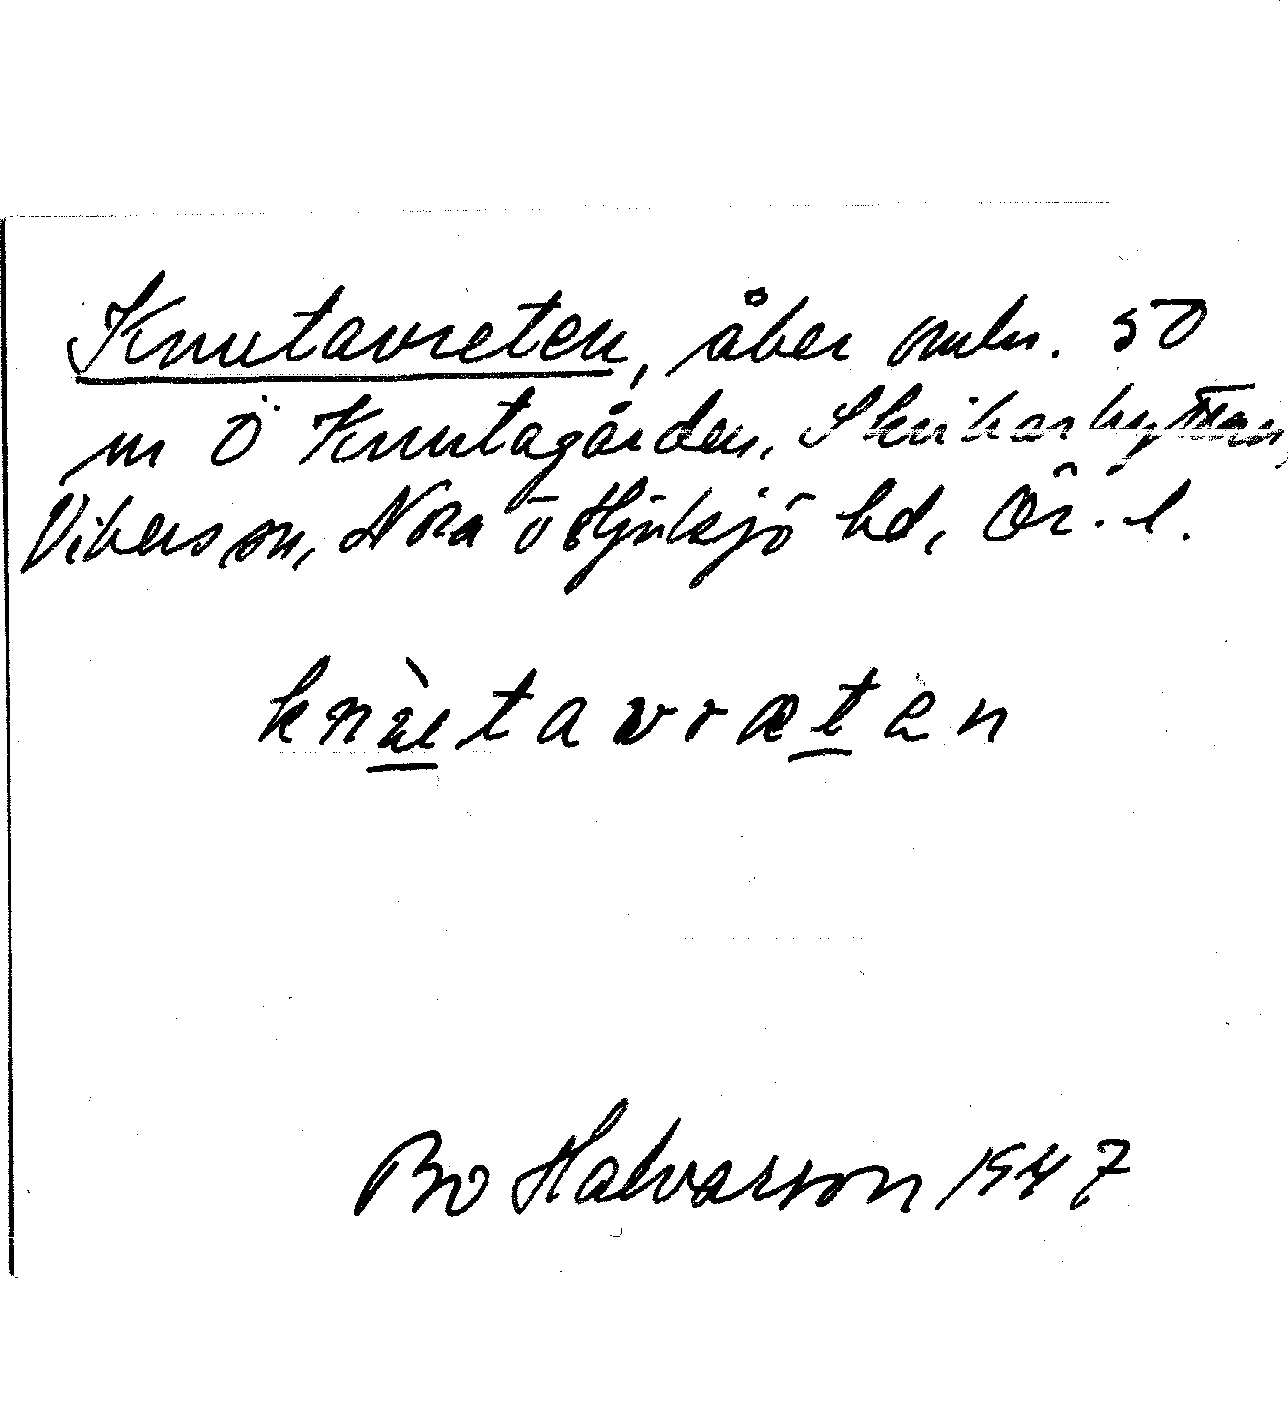 Knutavreten, åker omkr. 50
m Ö Knutagården, Skrikarhyttan,
Vikers sn, Nora o Hjulsjö hd, Ör. l.
knùtavræten
Bo Halvarson 1947